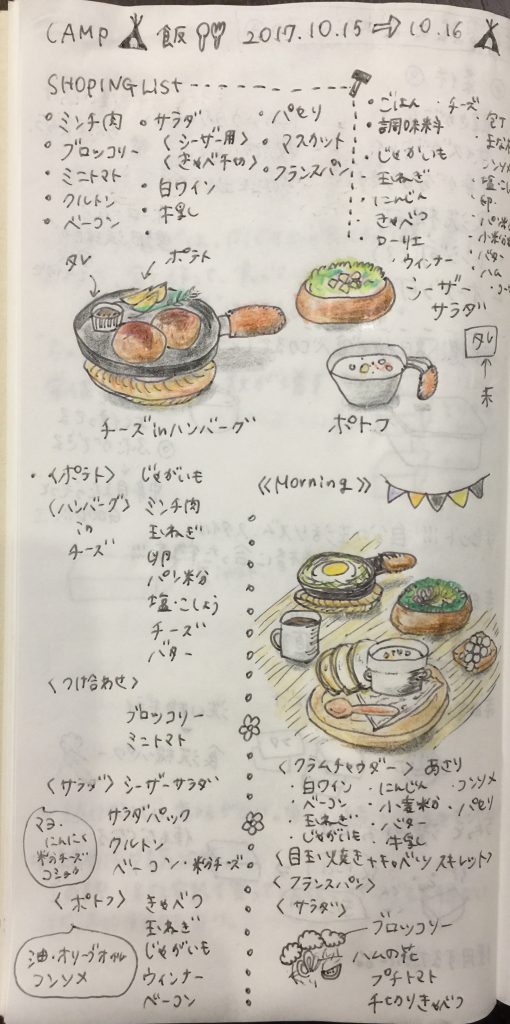 CAMP 飯 2017.10.15 ⇒ 10.16
SHOPING LIST
・ミンチ肉
・ブロッコリー
・ミニトマト
・クルトン
・ベーコン
・サラダ
〈シーザー用〉
〈きゃべ千切〉
・白ワイン
・牛乳
・パセリ
・マスカット
・フランスパン
・ごはん
・調味料
・じゃがいも
・玉ねぎ
・にんじん
・きゃべつ
・ローリエ
・ウィンナー
・チーズ
・包丁
・まな
・コンソメ
・塩・こし
・卵
・パン粉
・小麦粉
・バター
・ハム
タレ
ポテト
シーザー
サラダ
タレ
↑
チーズinハンバーグ
ポトフ
・〈ポテト〉 じゃがいも
〈ハンバーグ〉 ミンチ肉
in
チーズ
玉ねぎ
卵
パン粉
塩・こしょう
チーズ
バター
〈つけ合わせ〉
ブロッコリー
ミニトマト
〈サラダ〉 シーザーサラダ
サラダパック
クルトン
ベーコン・粉チーズ
マヨ・
にんにく
粉チーズ
コショウ
〈ポトフ〉 きゃべつ
玉ねぎ
じゃがいも
ウィンナー
ベーコン
油・オリーブオイル
コンソメ
《Morning》
〈クラムチャウダー〉 あさり
・白ワイン ・にんじん ・コンソメ
・ベーコン ・小麦粉 ・パセリ
・玉ねぎ ・バター
・じゃがいも ・牛乳
〈目玉焼き+キャベツ スキレット〉
〈フランスパン〉
〈サラダ〉
ブロッコリー
ハムの花
プチトマト
千切りきゃべつ